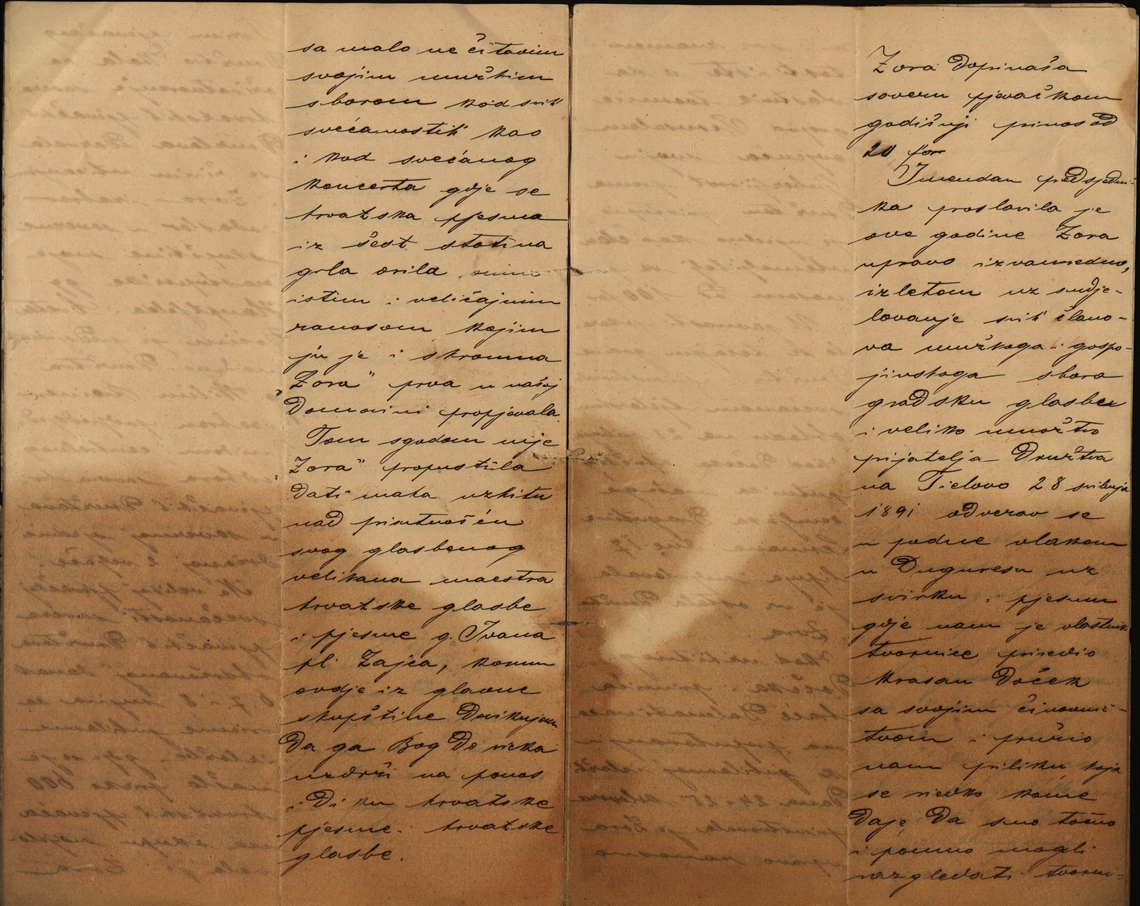 sa malo ne čitavim
svojim mužkim
sborom kod svih
svećanostih kao
i kod svećanog
koncerta gdje se
hrvatska pjesma
iz šest stotina
grla orila onim
istim i veličajnim
zanosom kojim
ju je i skromna
„Zora" prva u našoj
domovini propjevala.
Tom sgodom nije
„Zora" propustila
dati maha uzhitu
nad prisutnošću
svog glasbenog
velikana maestra
hrvatske glasbe
i pjesme g. Ivana
pl. Zajca, komu
ovdje iz glavne
skupštine dovikujem
da ga Bog do vieka
uzdrži na ponos
i diku hrvatske
pjesme i hrvatske
glasbe.
Zora doprinaša
savezu pjevačkom
godišnji prinos od
20 for
Imendan predsjedni-
ka proslavila je
ove godine Zora
upravo izvanredno,
izletom uz sudje-
lovanje svih člano-
va mužkoga i gospo-
jinskoga sbora
gradsku glasbu
i veliko množtvo
prijatelja Družtva
na Tielovo 28 svibnja
1891 odvezav se
u podne vlakom
u Dugaresu uz
svirku i pjesmu
gdje nam je vlastnik
tvornice priredio
krasan doček
sa svojim činovni-
tvom i pružio
nam priliku koja
se riedko kome
daje da smo točno
i pomno mogli
razgledati tvorni-